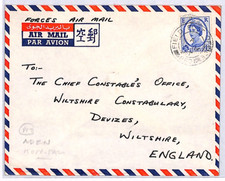 FORCES AIR MAIL
بالبريد الجوي
AIR MAIL
PAR AVION
空郵
TO:-
THE CHIEF CONSTABLE'S OFFICE,
WILTSHIRE CONSTABULARY,
DEVIZES,
WILTSHIRE,
ENGLAND.
ADEN